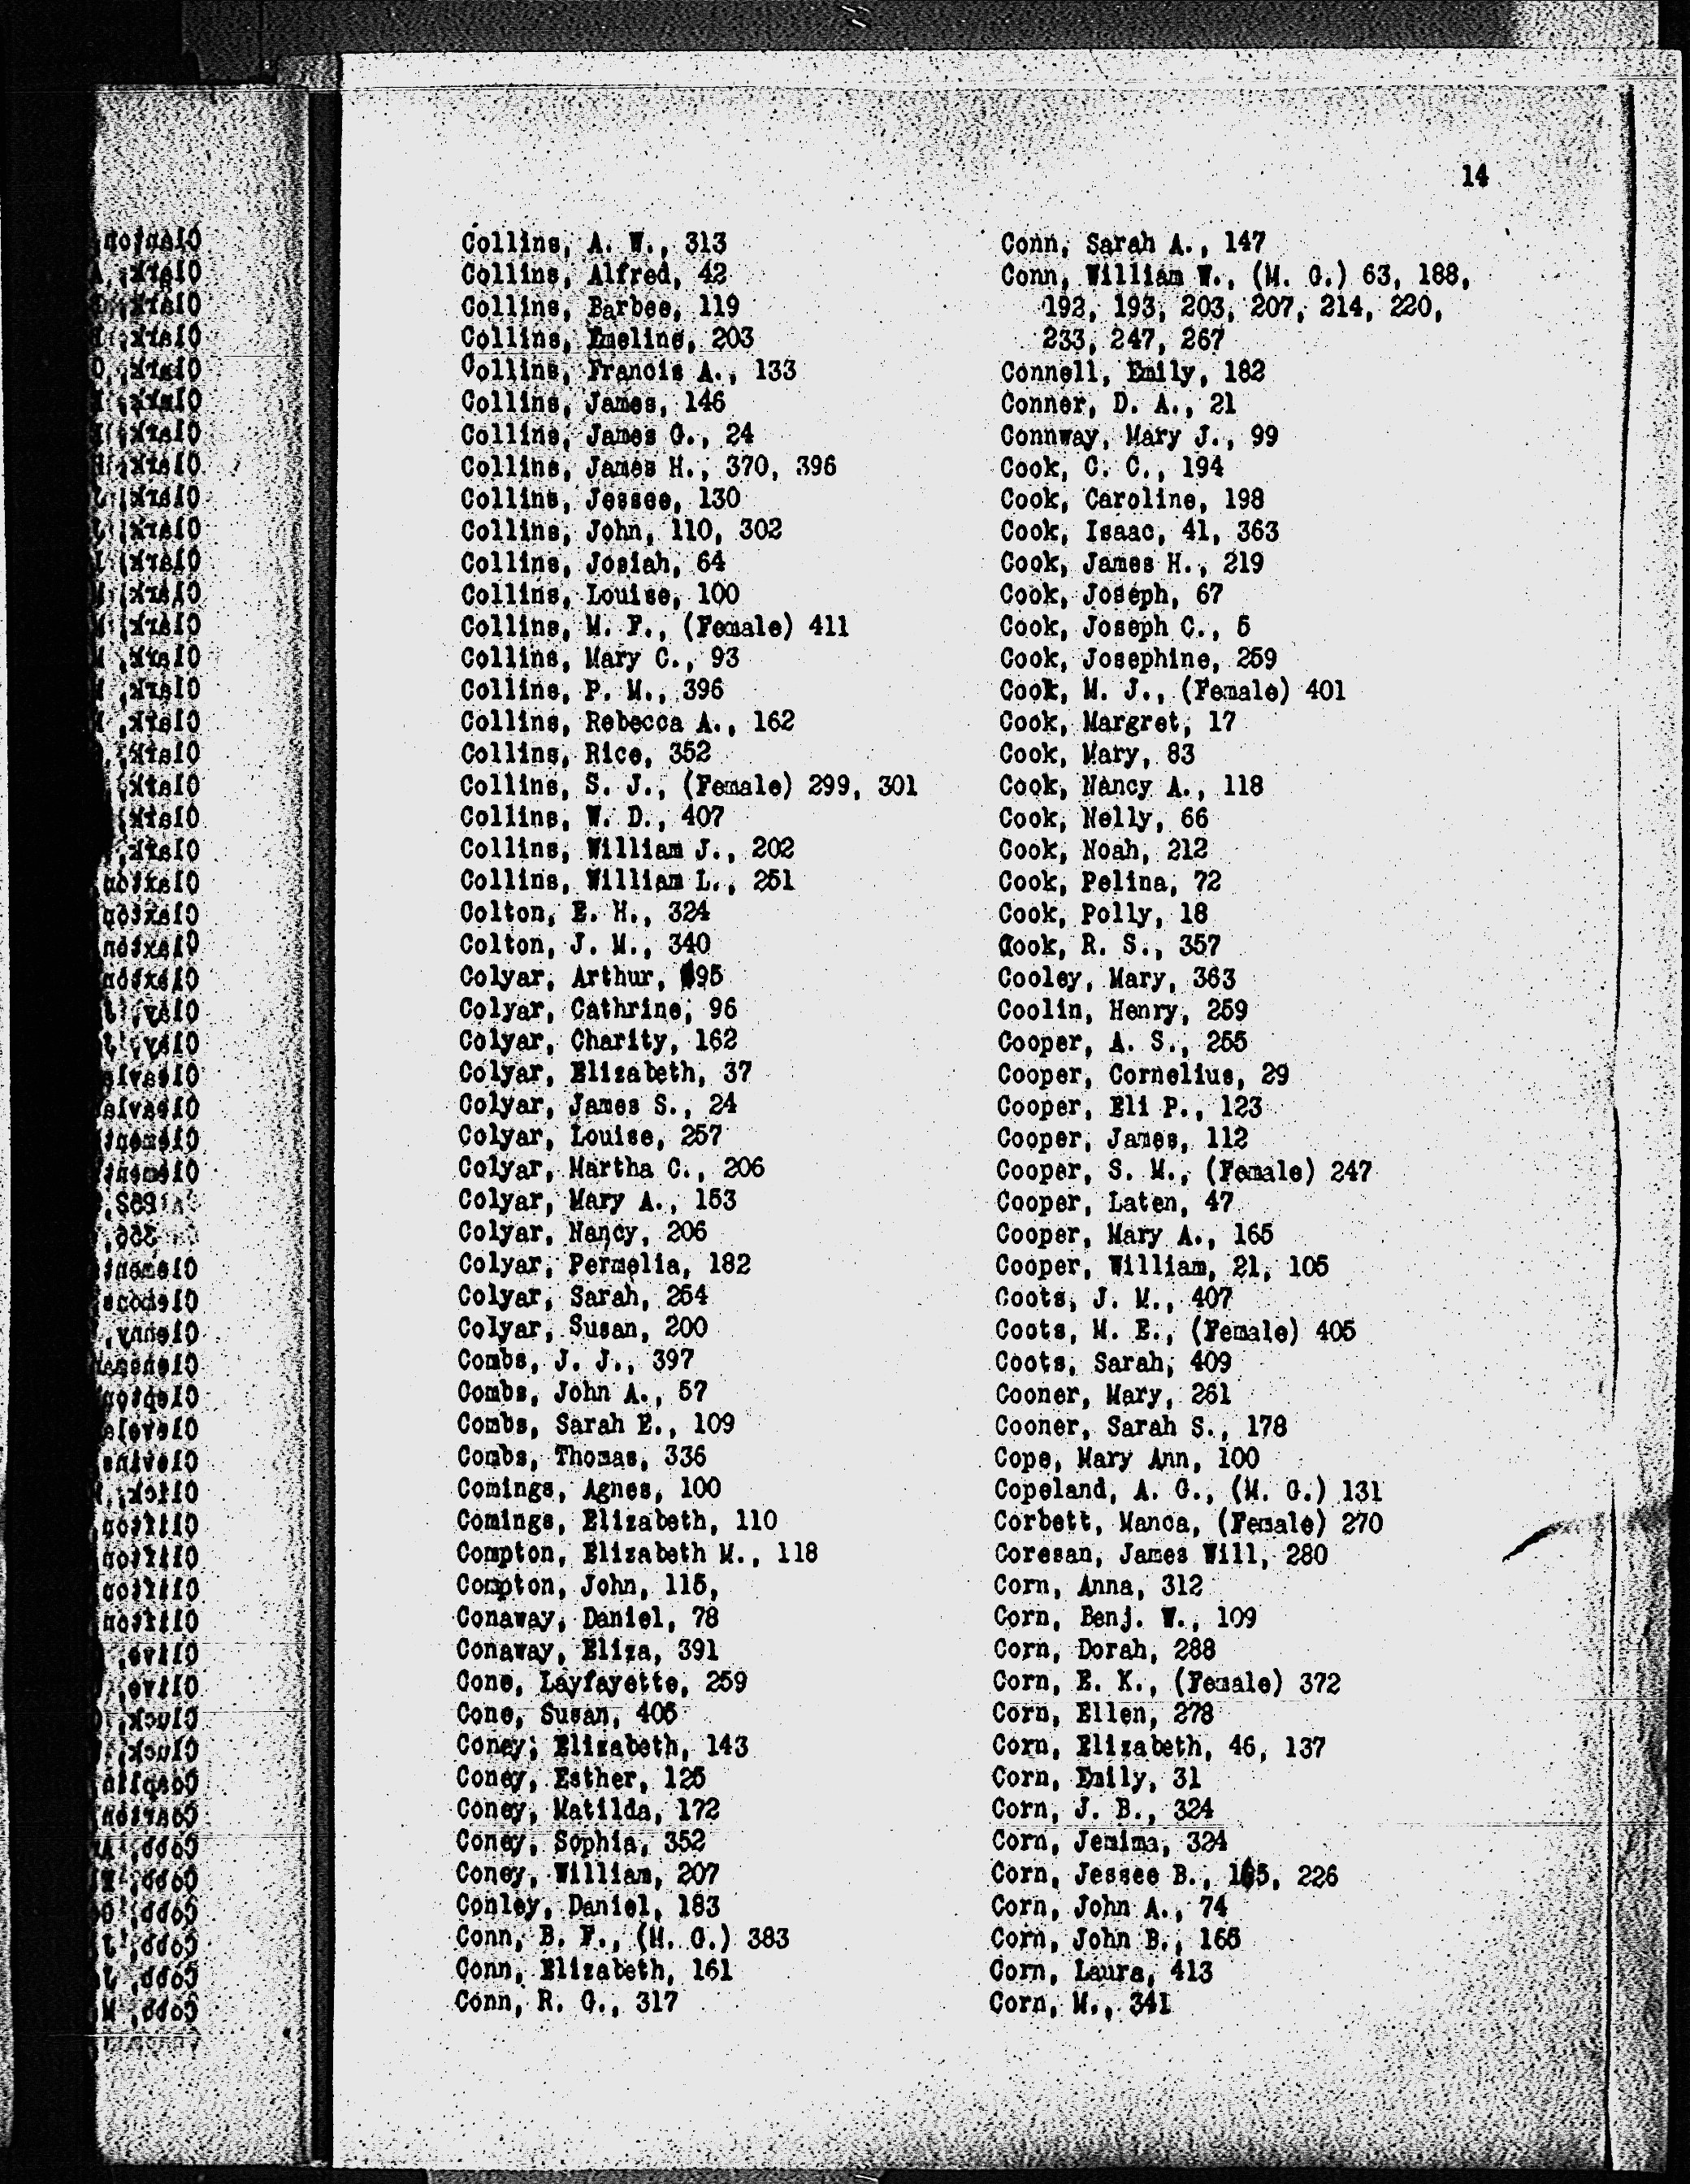 14
Collins, A. W., 313
Collins, Alfred, 42
Collins, Barbee, 119
Collins, Emeline, 203
Collins, Francis A., 133
Collins, James, 146
Collins, James G., 24
Collins, James H., 370, 396
Collins, Jessee, 130
Collins, John, 110, 302
Collins, Josiah, 64
Collins, Louise, 100
Collins, M. F., (Female) 411
Collins, Mary C., 93
Collins, P. M., 396
Collins, Rebecca A., 162
Collins, Rice, 352
Collins, S. J., (Female) 299, 301
Collins, W. D., 407
Collins, William J., 202
Collins, William L., 251
Colton, E. H., 324
Colton, J. M., 340
Colyar, Arthur, 95
Colyar, Cathrine, 96
Colyar, Charity, 162
Colyar, Elizabeth, 37
Colyar, James S., 24
Colyar, Louise, 257
Colyar, Martha C., 206
Colyar, Mary A., 153
Colyar, Nancy, 206
Colyar, Permelia, 182
Colyar, Sarah, 254
Colyar, Susan, 200
Combs, J. J., 397
Combs, John A., 57
Combs, Sarah E., 109
Combs, Thomas, 336
Comings, Agnes, 100
Comings, Elizabeth, 110
Compton, Elizabeth M., 118
Compton, John, 115,
Conaway, Daniel, 78
Conaway, Eliza, 391
Cone, Layfayette, 259
Cone, Susan, 405
Coney, Elizabeth, 143
Coney, Esther, 125
Coney, Matilda, 172
Coney, Sophia, 352
Coney, William, 207
Conley, Daniel, 183
Conn, B. F., (M. G.) 383
Conn, Elizabeth, 161
Conn, R. G., 317
Conn, Sarah A., 147
Conn, William W., (M. G.) 63, 188,
192, 193, 203, 207, 214, 220,
233, 247, 267
Connell, Emily, 182
Conner, D. A., 21
Connway, Mary J., 99
Cook, C. C., 194
Cook, Caroline, 198
Cook, Isaac, 41, 363
Cook, James H., 219
Cook, Joseph, 67
Cook, Joseph C., 5
Cook, Josephine, 259
Cook, M. J., (Female) 401
Cook, Margret, 17
Cook, Mary, 83
Cook, Nancy A., 118
Cook, Nelly, 66
Cook, Noah, 212
Cook, Pelina, 72
Cook, Polly, 18
Cook, R. S., 357
Cooley, Mary, 363
Coolin, Henry, 259
Cooper, A. S., 255
Cooper, Cornelius, 29
Cooper, Eli P., 123
Cooper, James, 112
Cooper, S. M., (Female) 247
Cooper, Laten, 47
Cooper, Mary A., 165
Cooper, William, 21, 105
Coots, J. M., 407
Coots, M. E., (Female) 405
Coots, Sarah, 409
Cooner, Mary, 261
Cooner, Sarah S., 178
Cope, Mary Ann, 100
Copeland, A. G., (M. G.) 131
Corbett, Manca, (Female) 270
Coresan, James Will, 280
Corn, Anna, 312
Corn, Benj. W., 109
Corn, Dorah, 288
Corn, E. K., (Female) 372
Corn, Ellen, 278
Corn, Elizabeth, 46, 137
Corn, Emily, 31
Corn, J. B., 324
Corn, Jemima, 324
Corn, Jessee B., 226
Corn, John A., 74
Corn, John B.,
Corn, Laura, 413
Corn, M., 341